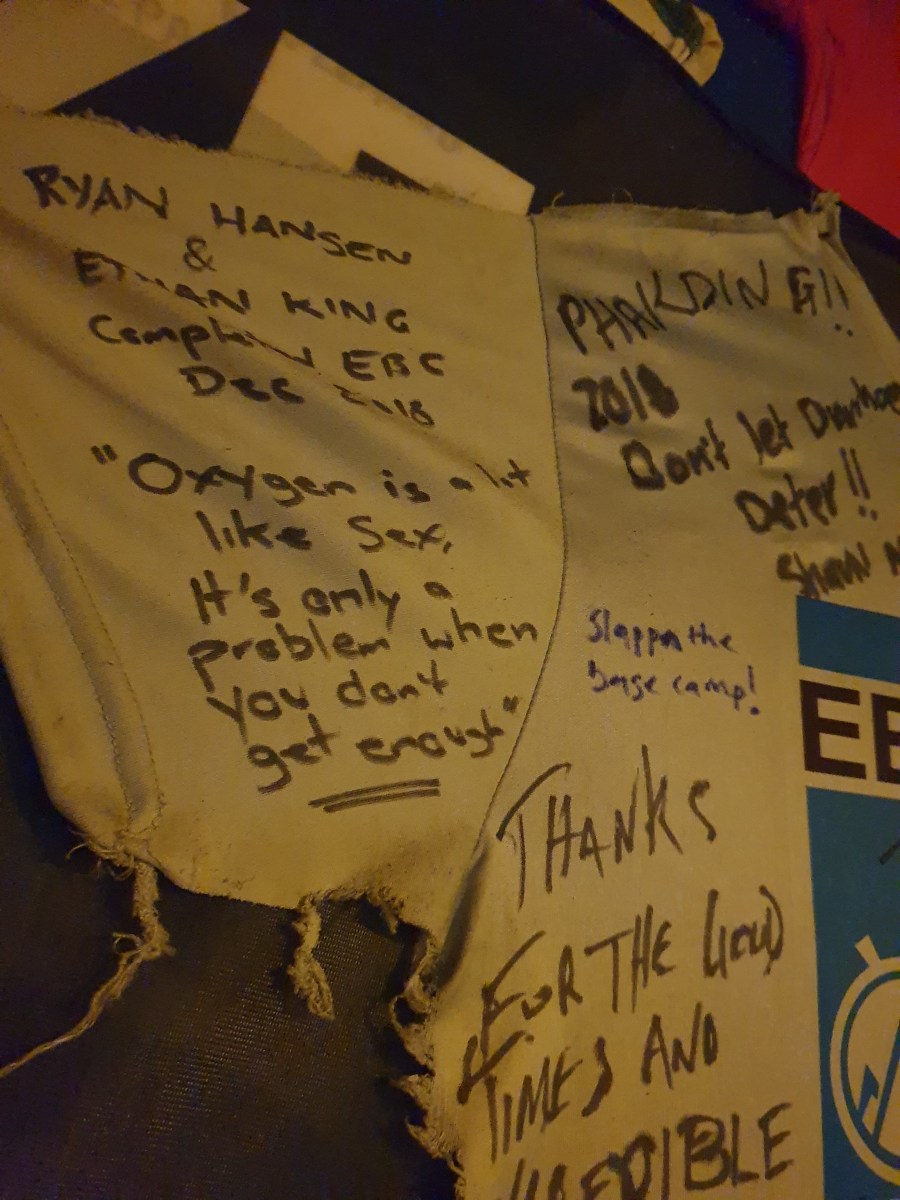 RYAN HANSEN
&
ETHAN KING
EBC
Dec 2018
"Oxygen is a lot
like Sex,
It's only a
problem when
you don't
get enough"
PHAKDING!!
2018
Don't let
Deter!!
Shawn
Slappin the
base camp!
THANKS
FOR THE GOOD
TIMES AND